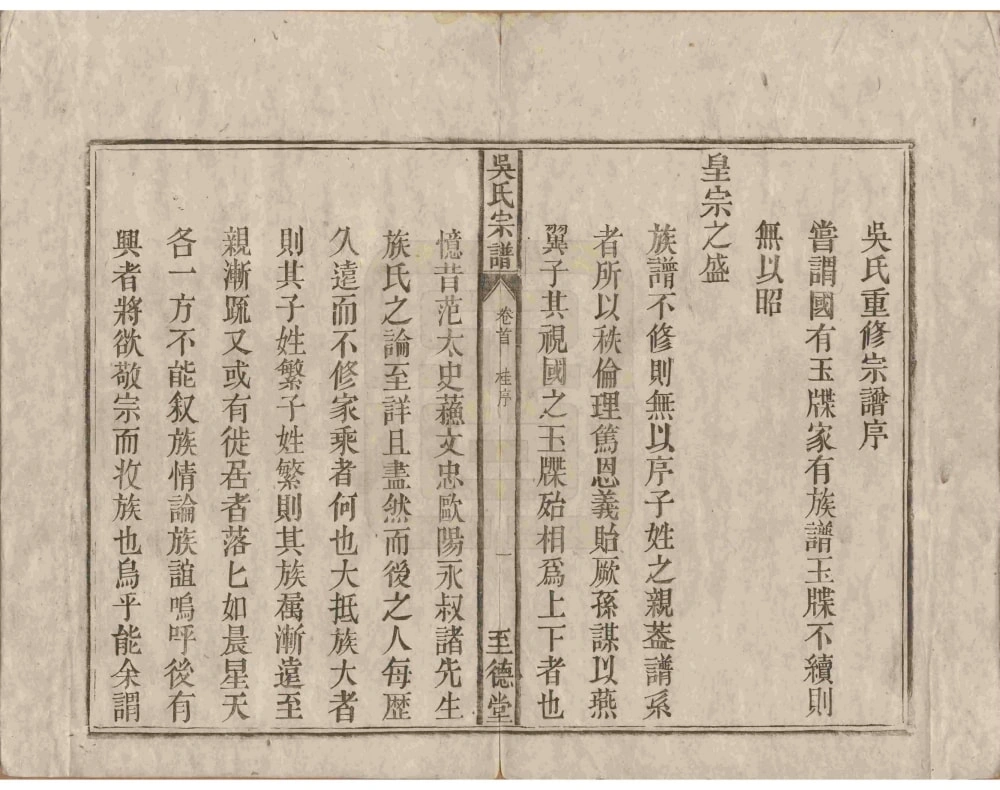 吳氏重修宗譜序
嘗謂國有玉牒家有族譜玉牒不續則
無以昭
皇宗之盛
族譜不修則無以序子姓之親葢譜系
者所以秩倫理篤恩義貽厥孫謀以燕
翼子其視國之玉牒殆相爲上下者也
吳氏宗譜
卷首
桂序
一
至德堂
憶昔范太史蘓文忠歐陽永叔諸先生
族氏之論至詳且盡然而後之人每歷
久遠而不修家乘者何也大抵族大者
則其子姓繁子姓繁則其族属漸遠至
親漸䟽又或有徙居者落匕如晨星天
各一方不能叙族情論族誼嗚呼後有
興者將欲敬宗而收族也烏乎能余謂